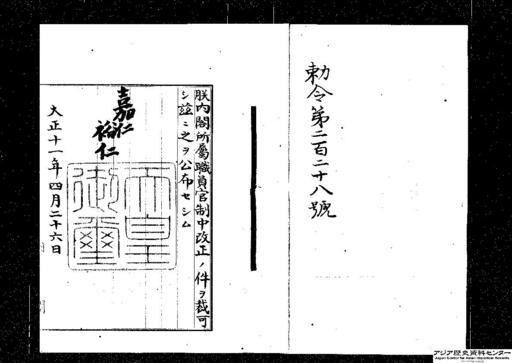 勅令第二百二十八號
朕内閣所屬職員官制中改正ノ件ヲ裁可
シ茲ニ之ヲ公布セシム
嘉仁
裕仁
天皇
御璽
大正十一年四月二十六日
アジア歴史資料センター
Japan Center for Asian Historical Records